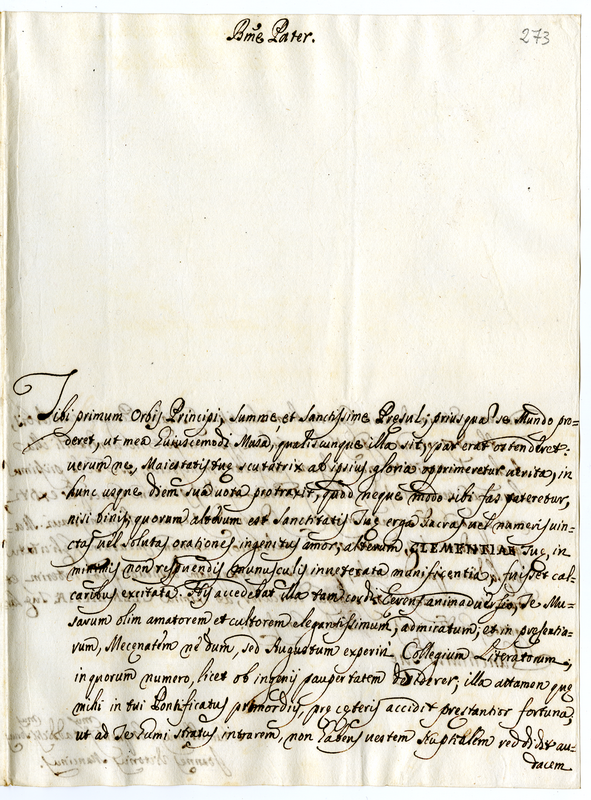 Bme Pater.
273
Tibi primum Orbis Principi, summe, et Sanctissime Presul; priusquã se Mundo pro-
deret, ut mea huiuscemodi Musa, qualiscunque illa sit, par erat ostenderet:
uerum ne, Maiestatis tuę scutatrix ab ipsius gloria opprimeretur uerita, in
hunc usque diem sua uota protraxit, quod neque modo sibi fas fateretur,
nisi binis, quorum alterum est Sanctitatis Tuę erga Sacras uel numeris uin-
ctas, uel solutas orationis ingenitus amor; alterum CLEMENTIAE Tuę, in
minimis non respuendis munusculis inueterata munificentia, fuisset cal-
caribus excitata. His accedebat illa tum cordis animaduersio, Te Mu-
sarum olim amatorem et cultorem elegantissimum, admiratum, et in pręsentia-
rum, Mecenatem nedum, sed Augustum experiri Collegium Literatorum,
in quorum numero, licet ob ingenij paupertatem desiderer; illa attamen quę
mihi in tui Pontificatus primordijs, prę cęteris accidit prestantior fortuna,
ut ad Te humi stratus intrarem, non habens uestem Nuptialem reddidit au-
dacem